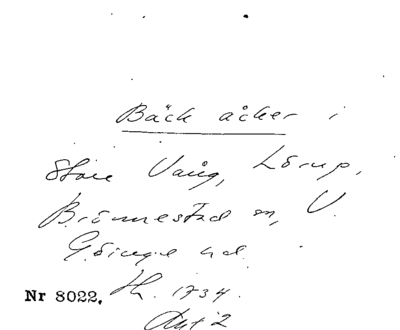 Bäck åcker i
Store Vång, Lörup,
Brönnestad sn, V.
Göinge hd.
Nr 8022. Hh. 1734.
Akt 2